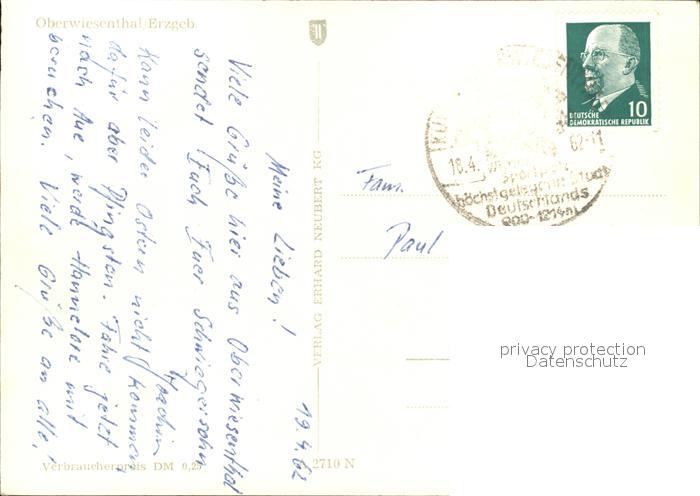 Oberwiesenthal/Erzgeb.
19.4.62
Meine Lieben!
Viele Grüße hier aus Oberwiesenthal
sendet Euch Euer Schwiegersohn
Joachim
Kann leider Ostern nicht kommen
dafür aber Pfingsten. Fahre jetzt
nach Aue, werde Hannelore mit
besuchen. Viele Grüße an alle!
Verbraucherpreis DM 0,25
VERLAG ERHARD NEUBERT KG
2710 N
DEUTSCHE
DEMOKRATISCHE REPUBLIK
10
18.4. 62-11
höchstgelegene Stadt
Deutschlands
900-1214m
Fam.
Paul
privacy protection
Datenschutz